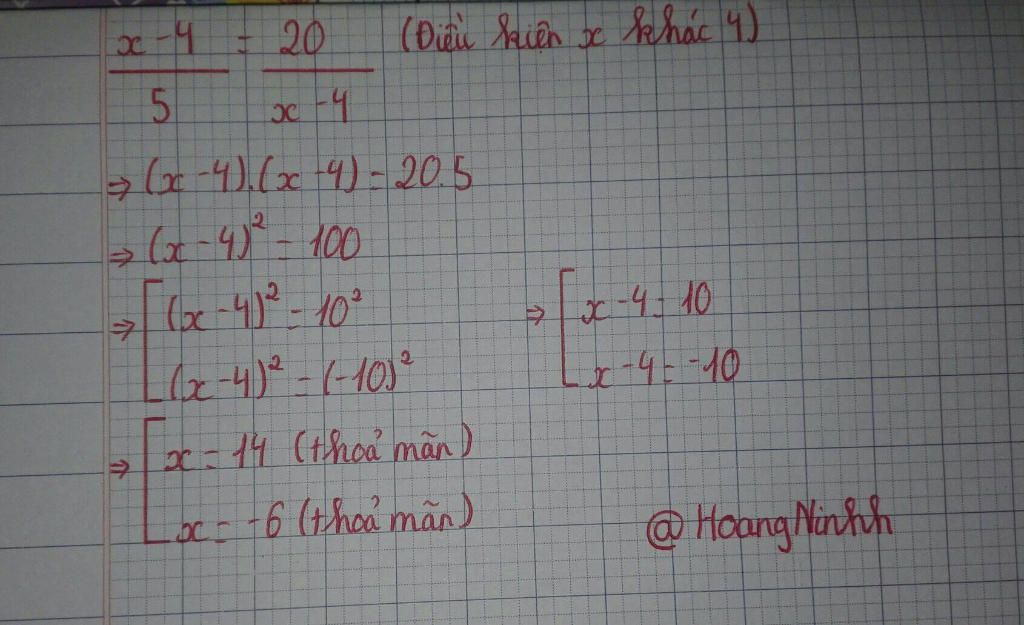 x - 4 / 5 = 20 / x - 4 (Điều kiện x khác 4)
⇒ (x - 4).(x - 4) = 20.5
⇒ (x - 4)² = 100
⇒ [ (x - 4)² = 10²
(x - 4)² = (-10)²
⇒ [ x - 4 = 10
x - 4 = -10
⇒ [ x = 14 (thoả mãn)
x = -6 (thoả mãn)
@HoangNinhh